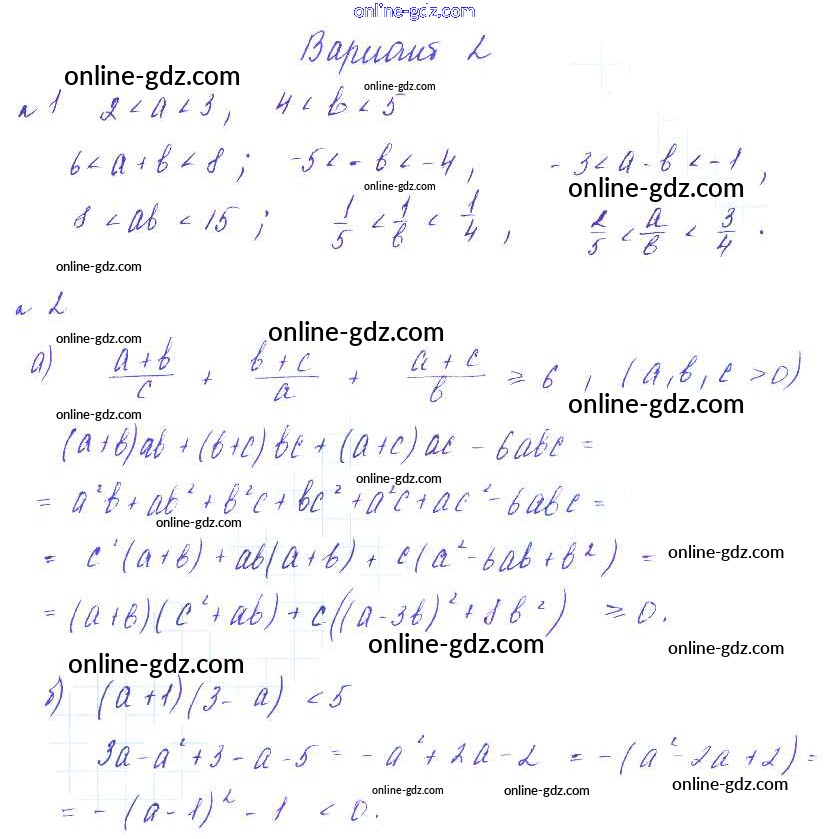 online-gdz.com
Вариант 2
online-gdz.com online-gdz.com
№ 1 2 < a < 3, 4 < b < 5
6 < a + b < 8; -5 < -b < -4, -3 < a - b < -1,
online-gdz.com online-gdz.com
8 < ab < 15; 1/5 < 1/b < 1/4, 2/5 < a/b < 3/4.
online-gdz.com
№ 2
online-gdz.com online-gdz.com
а) (a+b)/c + (b+c)/a + (a+c)/b ≥ 6, (a, b, c > 0)
online-gdz.com online-gdz.com
(a+b)ab + (b+c)bc + (a+c)ac - 6abc =
online-gdz.com
= a²b + ab² + b²c + bc² + a²c + ac² - 6abc =
online-gdz.com
= c²(a+b) + ab(a+b) + c(a² - 6ab + b²) = online-gdz.com
= (a+b)(c² + ab) + c((a-3b)² + 8b²) ≥ 0.
online-gdz.com online-gdz.com
online-gdz.com
б) (a+1)(3-a) < 5
3a - a² + 3 - a - 5 = -a² + 2a - 2 = -(a² - 2a + 2) =
online-gdz.com online-gdz.com online-gdz.com
= -(a-1)² - 1 < 0.